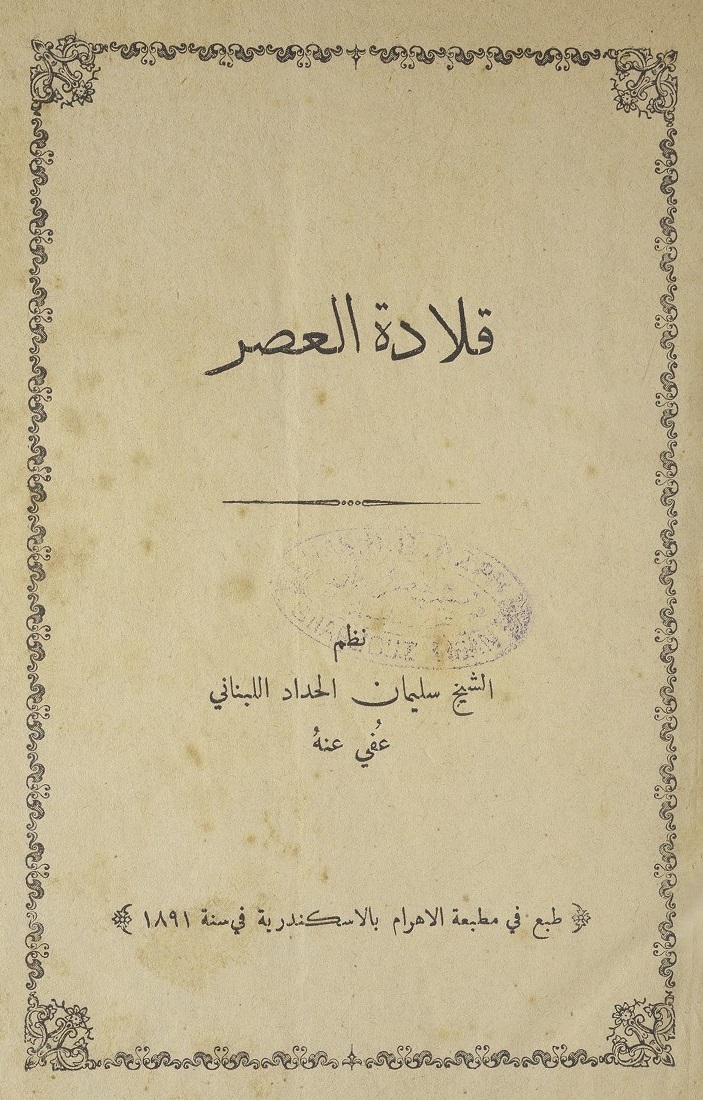 قلادة العصر
نظم
الشيخ سليمان الحداد اللبناني
عُفي عنهُ
طبع في مطبعة الاهرام بالاسكندرية في سنة ١٨٩١